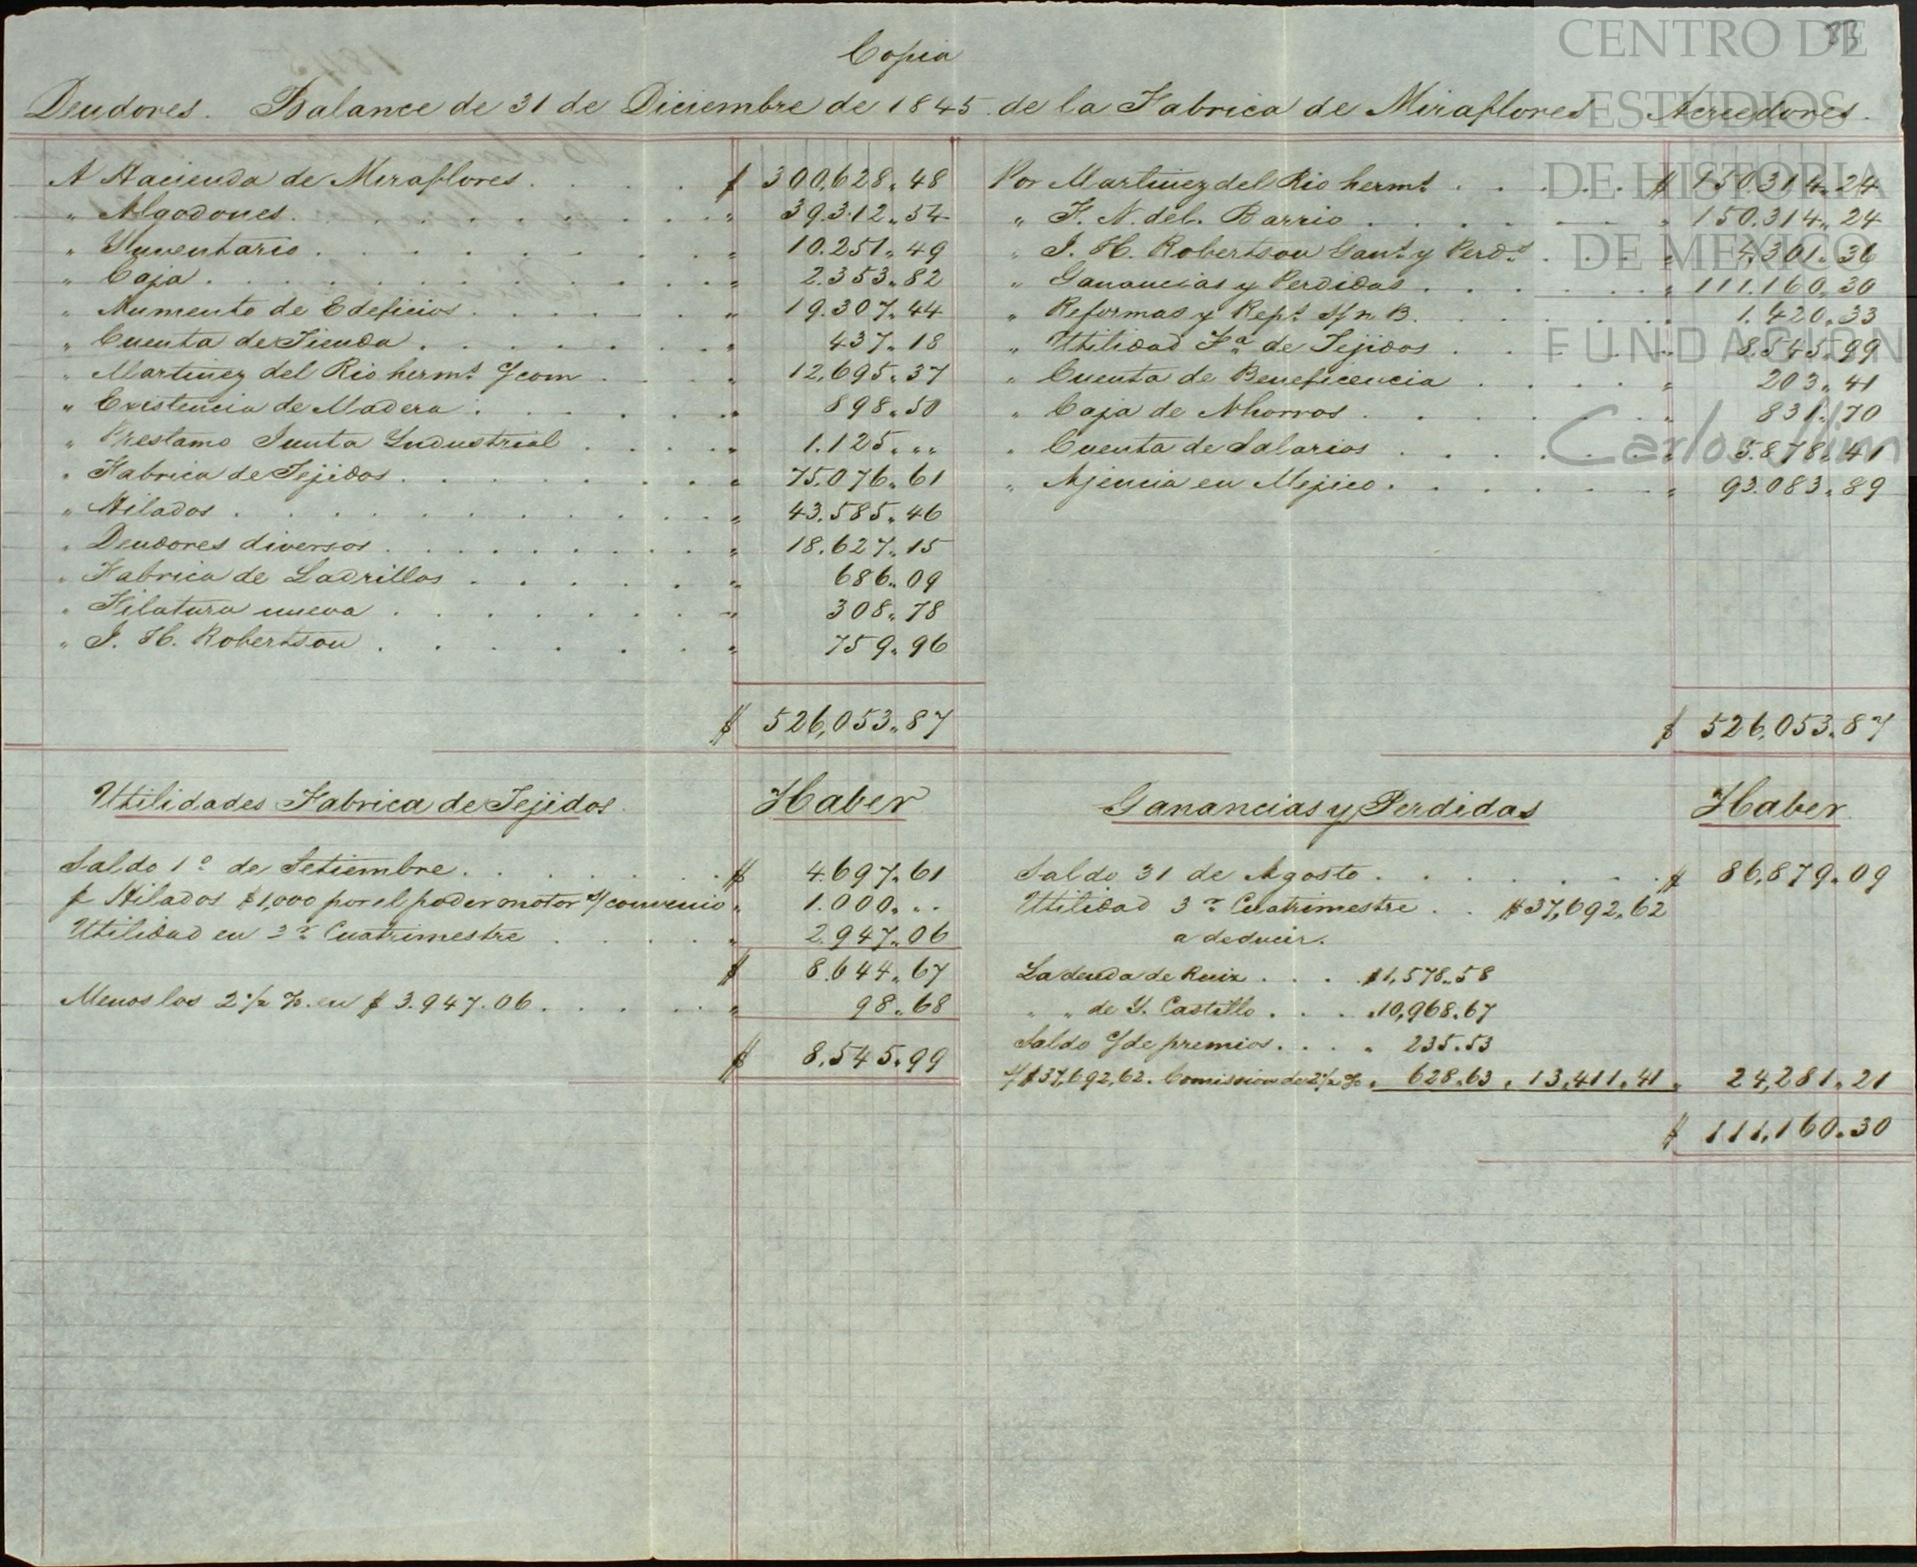 Copia
Deudores. Balance de 31 de Diciembre de 1845 de la Fabrica de Miraflores Acreedores.
A Hacienda de Miraflores . . . . $ 300,628,,48
" Algodones . . . . " 39.312,,54
" Ynventario . . . . " 10.251,,49
" Caja . . . . " 2.353,,82
" Aumento de Edeficios . . . . " 19.307,,44
" Cuenta de Tienda . . . . " 437,,18
" Martinez del Rio herms. C/com . . . . " 12,695,,37
" Existencia de Madera . . . . " 898,,50
" Prestamo Junta Yndustrial . . . . " 1.125,,,,
" Fabrica de Tejidos . . . . " 75.076,,61
" Hilados . . . . " 43.585,,46
" Deudores diversos . . . . " 18.627,,15
" Fabrica de Ladrillos . . . . " 686,,09
" Filatura nueva . . . . " 308,,78
" J. H. Robertson . . . . " 759,,96
$ 526,053,,87
Por Martinez del Rio herms. . . . . $ 150.314,,24
" F. N. del Barrio . . . . " 150.314,,24
" J. H. Robertson Gans. y Perds. . . . " 4,301,,36
" Ganancias y Perdidas . . . . " 111.160,,30
" Reformas y Rept. . . . . " 1.420,,33
" Utilidad Fa. de Tejidos . . . . " 8.545,,99
" Cuenta de Beneficencia . . . . " 203,,41
" Caja de Ahorros . . . . " 831,,70
" Cuenta de Salarios . . . . " 5.878,,41
" Ajencia en Mejico . . . . " 93.083,,89
$ 526,053,,87
Utilidades Fabrica de Tejidos Haber
Saldo 1º de Setiembre . . . . $ 4.697,,61
p Hilados $1,000 por el poder motor s/ convenio " 1.000,, . .
Utilidad en 3r. Cuatrimestre . . . . " 2.947,,06
$ 8.644,,67
Menos los 2 1/2 %. en $ 3.947.06 . . . . " 98,,68
$ 8,545,,99
Ganancias y Perdidas Haber
Saldo 31 de Agosto . . . . $ 86,879,,09
Utilidad 3r. Cuatrimestre . . $ 37,692,,62
a deducir.
La deuda de Ruiz . . . . $1,578,,58
" " de Y. Castillo . . . . " 10,968,,67
Saldo C/ de premios . . . . " 235,,53
s/ $37,692,62. Comission de 2 1/2 % " 628,,63 " 13,411,,41 " 24,281,,21
$ 111,160,,30
CENTRO DE
ESTUDIOS
DE HISTORIA
DE MEXICO
FUNDACION
Carlos Slim